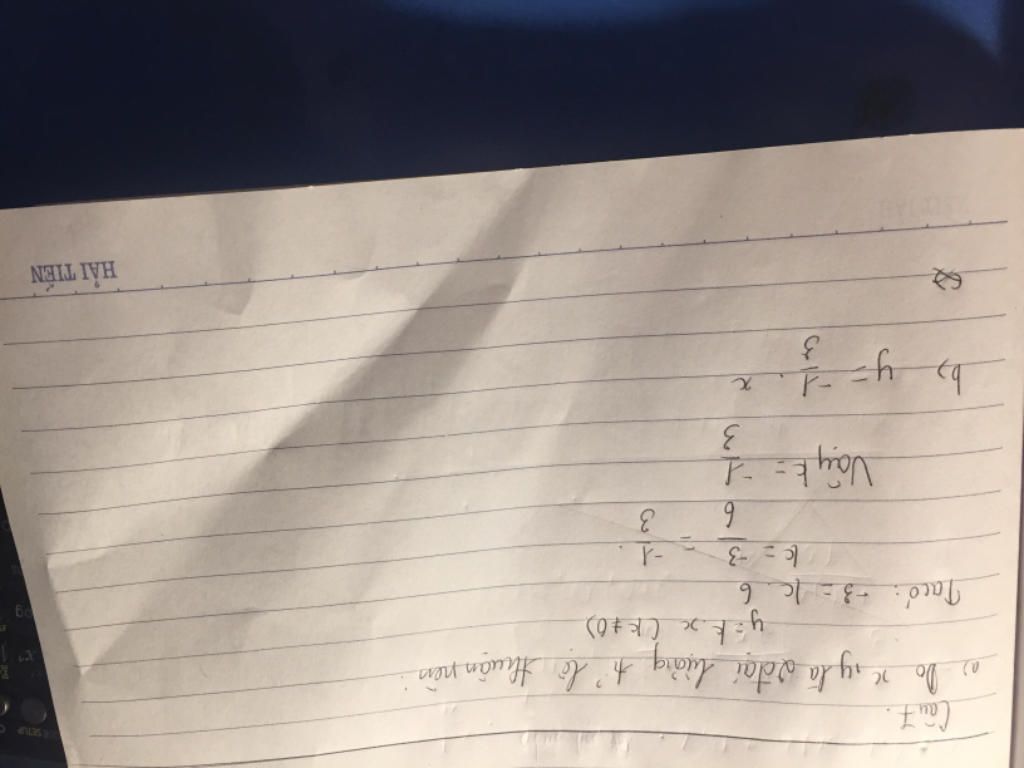 Câu 7.
a) Do x y là 2 đại lượng tỉ lệ thuận nên:
y = k. x (k ≠ 0)
Ta có: -3 = k. 6
k = -3/6 = -1/3.
Vậy k = -1/3
b) y = -1/3 . x
HẢI TIẾN